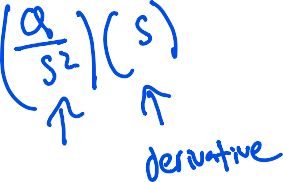 (a/s²)(s)
derivative